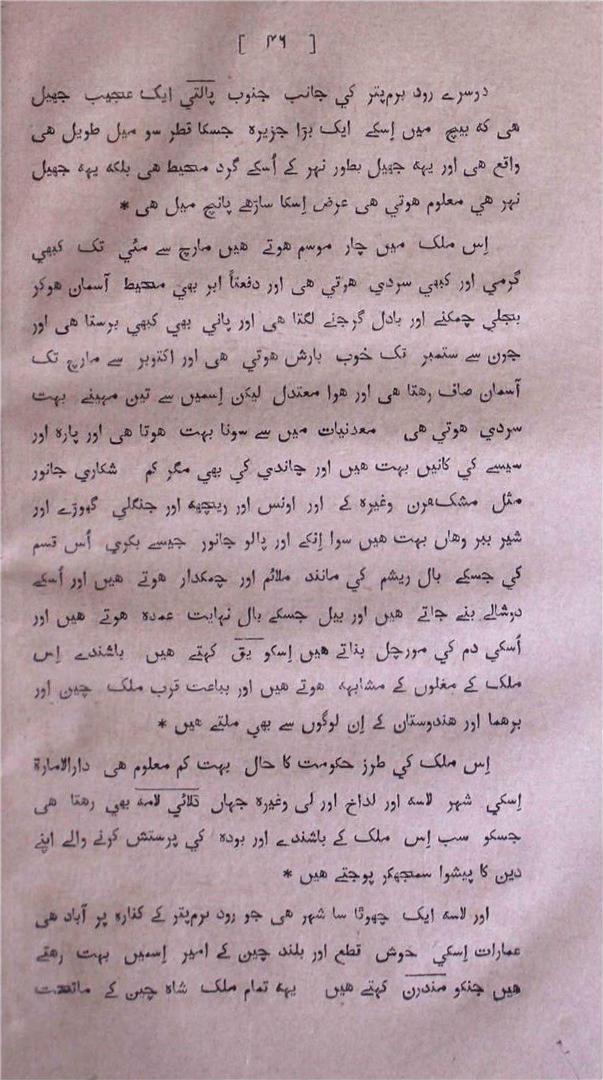 [ ۴۶ ]
دوسرے رود برم‌پتر کي جانب جنوب پالتي ايک عجيب جهيل
هی که بيچ ميں اِسکے ايک بڑا جزيرہ جسکا قطر سو ميل طويل هی
واقع هی اور يهه جهيل بطور نهر کے اُسکے گرد محيط هی بلکه يهه جهيل
نهر هي معلوم هوتي هی عرض اِسکا ساڑهے پانچ ميل هی *
اِس ملک ميں چار موسم هوتے هيں مارچ سے مئي تک کبهي
گرمي اور کبهي سردي هوتي هی اور دفعتاً ابر بهي محيط آسمان هوکر
بجلي چمکنے اور بادل گرجنے لگتا هی اور پاني بهي کبهي برستا هی اور
جون سے ستمبر تک خوب بارش هوتي هی اور اکتوبر سے مارچ تک
آسمان صاف رهتا هی اور هوا معتدل ليکن اِسميں سے تين مهينے بهت
سردي هوتي هی معدنيات ميں سے سونا بهت هوتا هی اور پارہ اور
سيسے کي کانيں بهت هيں اور چاندي کي بهي مگر کم شکاري جانور
مثل مشک‌هرن وغيرہ کے اور اونس اور ريچهه اور جنگلي گهوڑے اور
شير ببر وهاں بهت هيں سوا اِنکے اور پالو جانور جيسے بکري اُس قسم
کي جسکے بال ريشم کي مانند ملائم اور چمکدار هوتے هيں اور اُسکے
دوشالے بنے جاتے هيں اور بيل جسکے بال نهايت عمدہ هوتے هيں اور
اُسکي دم کي مورچل بناتے هيں اِسکو يق کهتے هيں باشندے اِس
ملک کے مغلوں کے مشابهه هوتے هيں اور بباعث قرب ملک چين اور
برهما اور هندوستان کے اِن لوگوں سے بهي ملتے هيں *
اِس ملک کي طرز حکومت کا حال بهت کم معلوم هی دارالامارة
اِسکي شهر لاسه اور لداخ اور لی وغيرہ جهاں تلائي لامه بهي رهتا هی
جسکو سب اِس ملک کے باشندے اور بودہ کي پرستش کرنے والے اپنے
دين کا پيشوا سمجهکر پوجتے هيں *
اور لاسه ايک چهوٹا سا شهر هی جو رود برم‌پتر کے کنارہ پر آباد هی
عمارات اِسکي خوش قطع اور بلند چين کے امير اِسميں بهت رهتے
هيں جنکو مندرن کهتے هيں يهه تمام ملک شاہ چين کے ماتحت